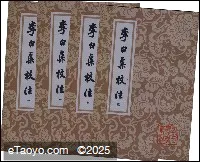 李白集校注 一
李白集校注
李白集校注
李白集校注
eTaoyo.com ©2025